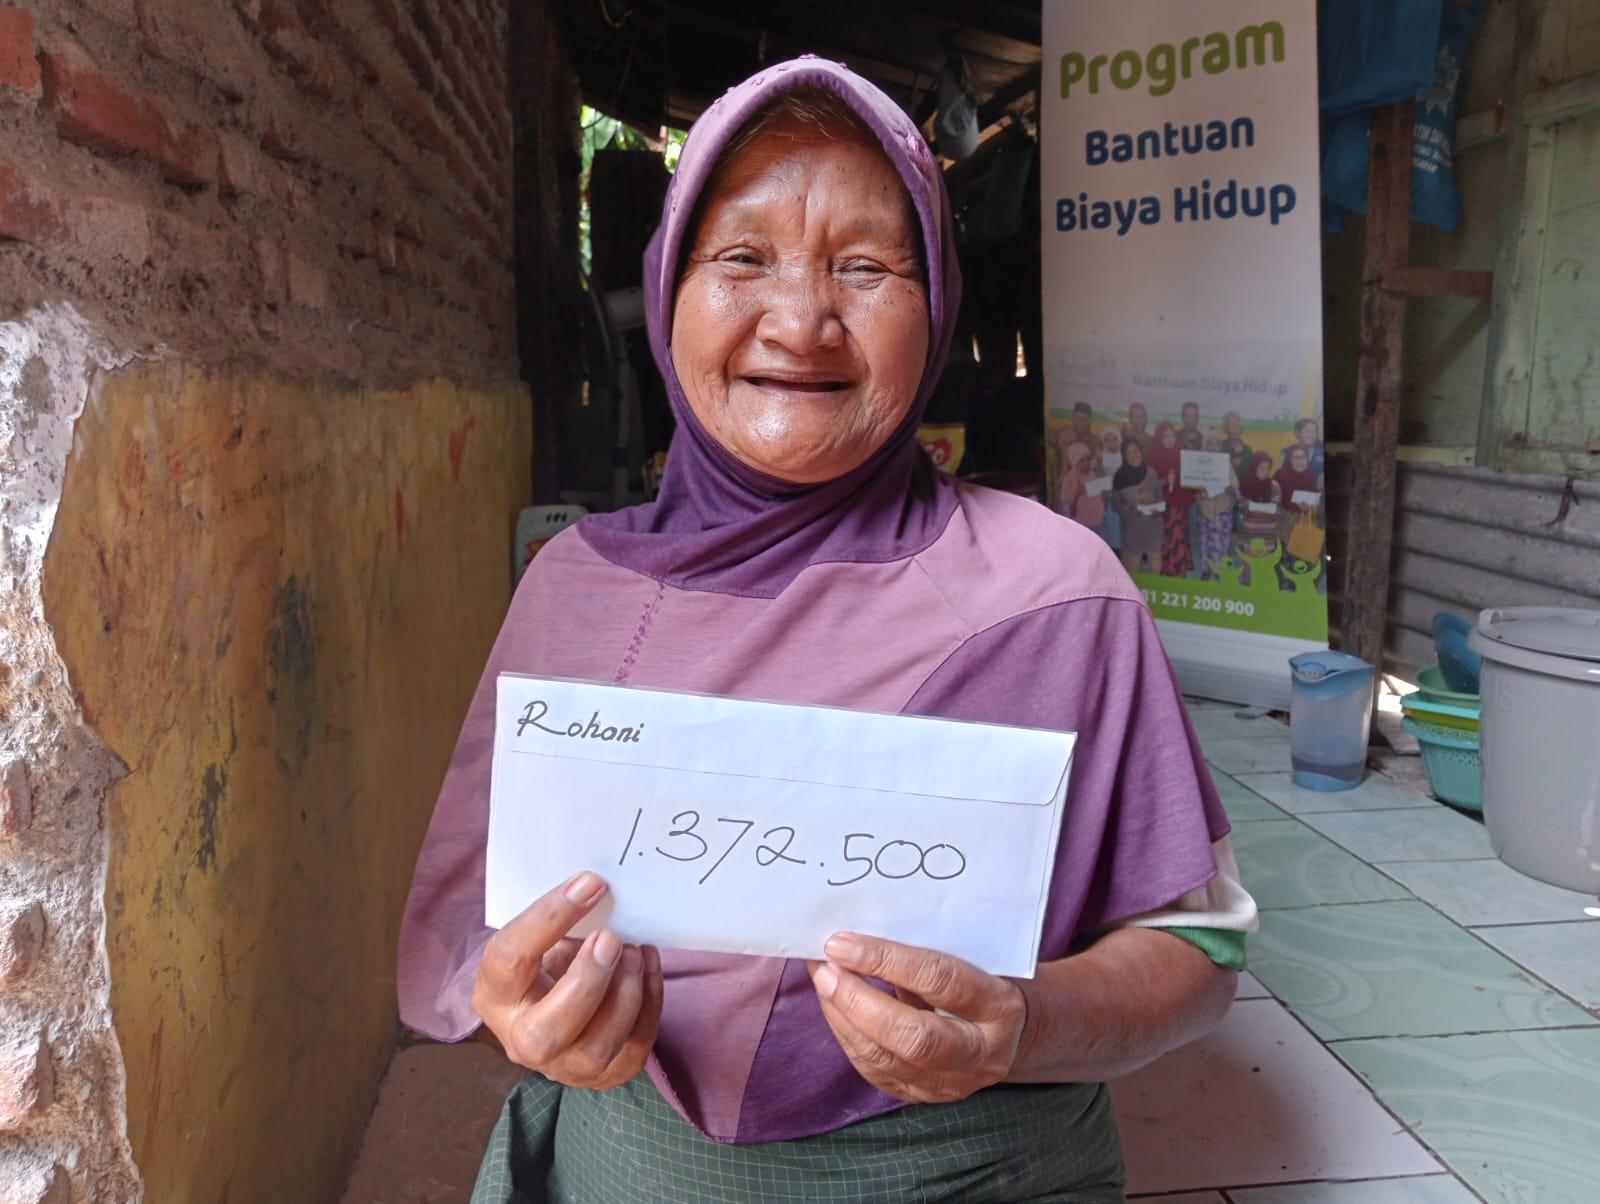 Program
Bantuan
Biaya Hidup
Program
Bantuan Biaya Hidup
221 200 900
Rohani
1.372.500